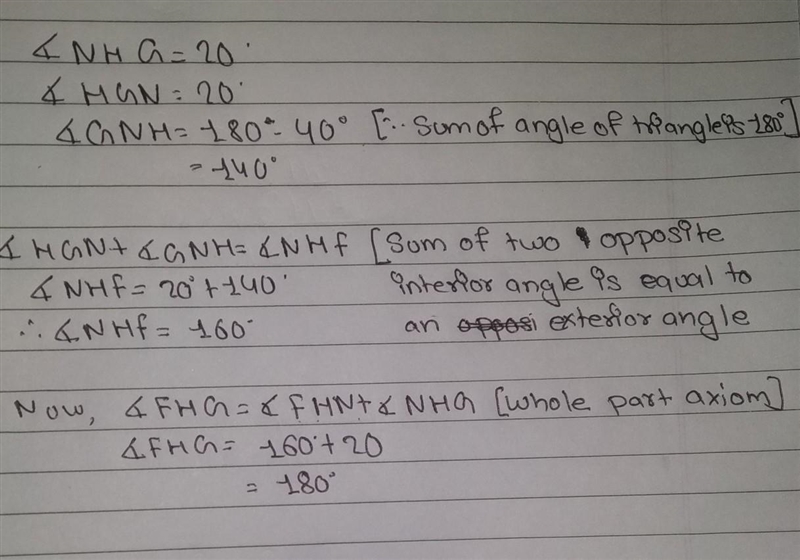 ∡ NHG = 20°
∡ HGN = 20°
∡GNH = 180° - 40° [∵ Sum of angle of triangle is 180°]
= 140°
∡ HGN + ∡GNH = ∡NHf [Sum of two opposite
∡ NHf = 20° + 140° interior angle is equal to
∴ ∡NHf = 160° an exterior angle
Now, ∡FHG = ∡fHN + ∡NHG [whole part axiom]
∡FHG = 160° + 20
= 180°